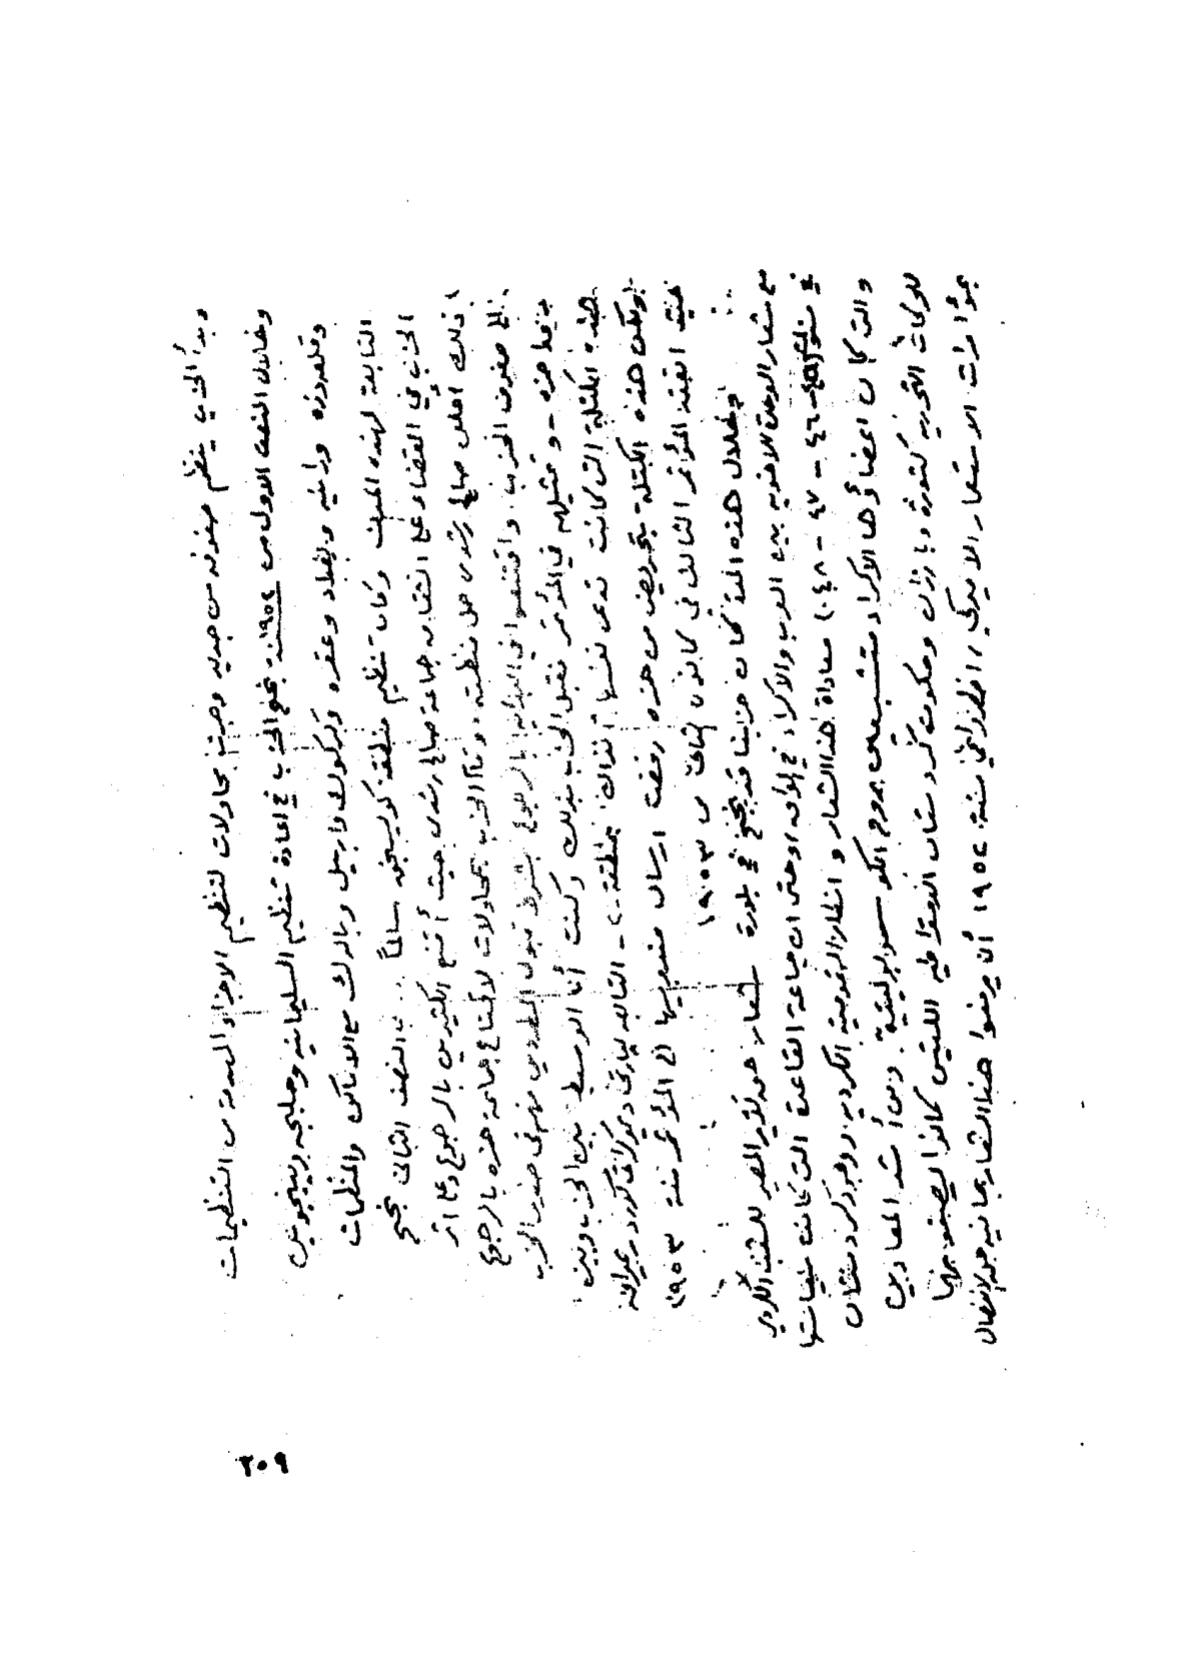 وبدأ الحزب ينظم صفوفه من جديد وجرت محاولات لتنظيم الاجزاء المهدمة من التنظيمات
وخلال النصف الاول من سنة ١٩٥٤ نجح الحزب في اعادة تنظيم السليمانيه وحلبجه وبينجوين
وقلعه دزه ورانيه وبغداد وعقره وكركوك واربيل مع الاماكن والمنظمات
التابعة لهذه المدن وكان تنظيم منطقة كويسنجق سالماً .. في النصف الثاني نجح
الحزب في القضاء على انشقاق جماعة صالح رشدي حيث أقنع الكثيرين بالرجوع وعلى اثر
ذلك اعلن صالح رشدي حل منظمته . وقام الحزب بمحاولات لاقناع جماعة حمزه بالرجوع
الى صفوف الحزب . واقتنعوا في البداية بالرجوع بشرط قبول المطرودين منهم في صفوف الحزب
حمزه - وتمثيلهم في المؤتمر فقبل الحزب بذلك وكنت أنا الوسيط بين الحزب وبين
هذه الكتلة التي كانت تدعى نفسها آنذاك بمنظمة - التابعه لبارتي
ولكن هذه الكتلة بتحريض من حمزه رفضت ارسال مندوبيها الى المؤتمر سنة ١٩٥٣
حيث انعقد المؤتمر الثالث في كانون الثاني من ١٩٥٣
وخلال هذه المدة كان حزبنا قد نجح في بلورة شعار حق تقرير المصير للشعب الكردي
مع شعار الوحدة الاخوية بين العرب والاكراد في العراق، وحتى ان جماعة القاعدة التي كانت
في سنوات (٤٥ - ٤٦ - ٤٧ - ٤٨) معاداة هذا الشعار وانكار القومية الكردية ووجود كردستان
والتي كان اعضاؤها الاكراد متشبعين بروح الكوسموبوليتية . ومن أشد المعادين
للحركات التحررية كثورة بارزان وحكومة كردستان الديمقراطية اللتين كانوا يصفونهما
بمؤامرات الاستعمار الاميركي ، اضطروا في سنة ١٩٥٢ أن يرفعوا هذا الشعار بما فيه حق الانفصال
٢٠٩